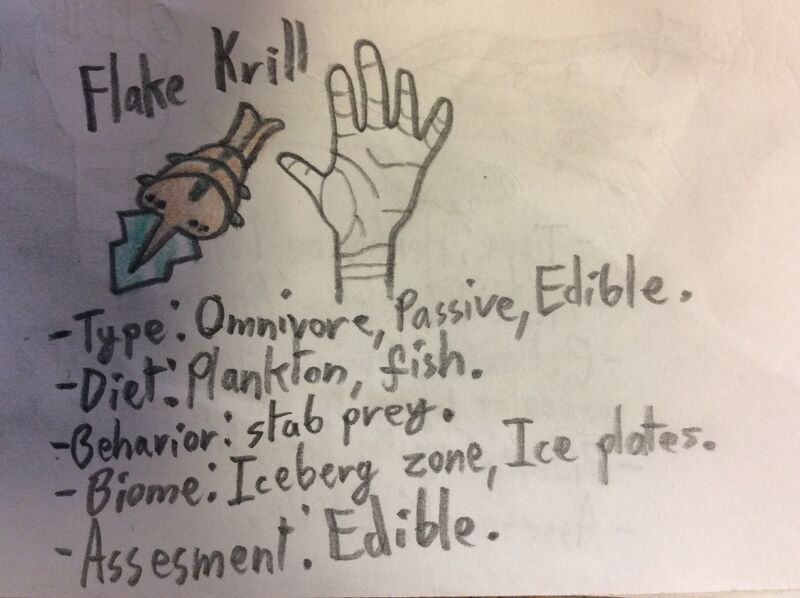 Flake Krill
-Type: Omnivore, Passive, Edible.
-Diet: Plankton, fish.
-Behavior: stab prey.
-Biome: Iceberg zone, Ice plates.
-Assesment: Edible.